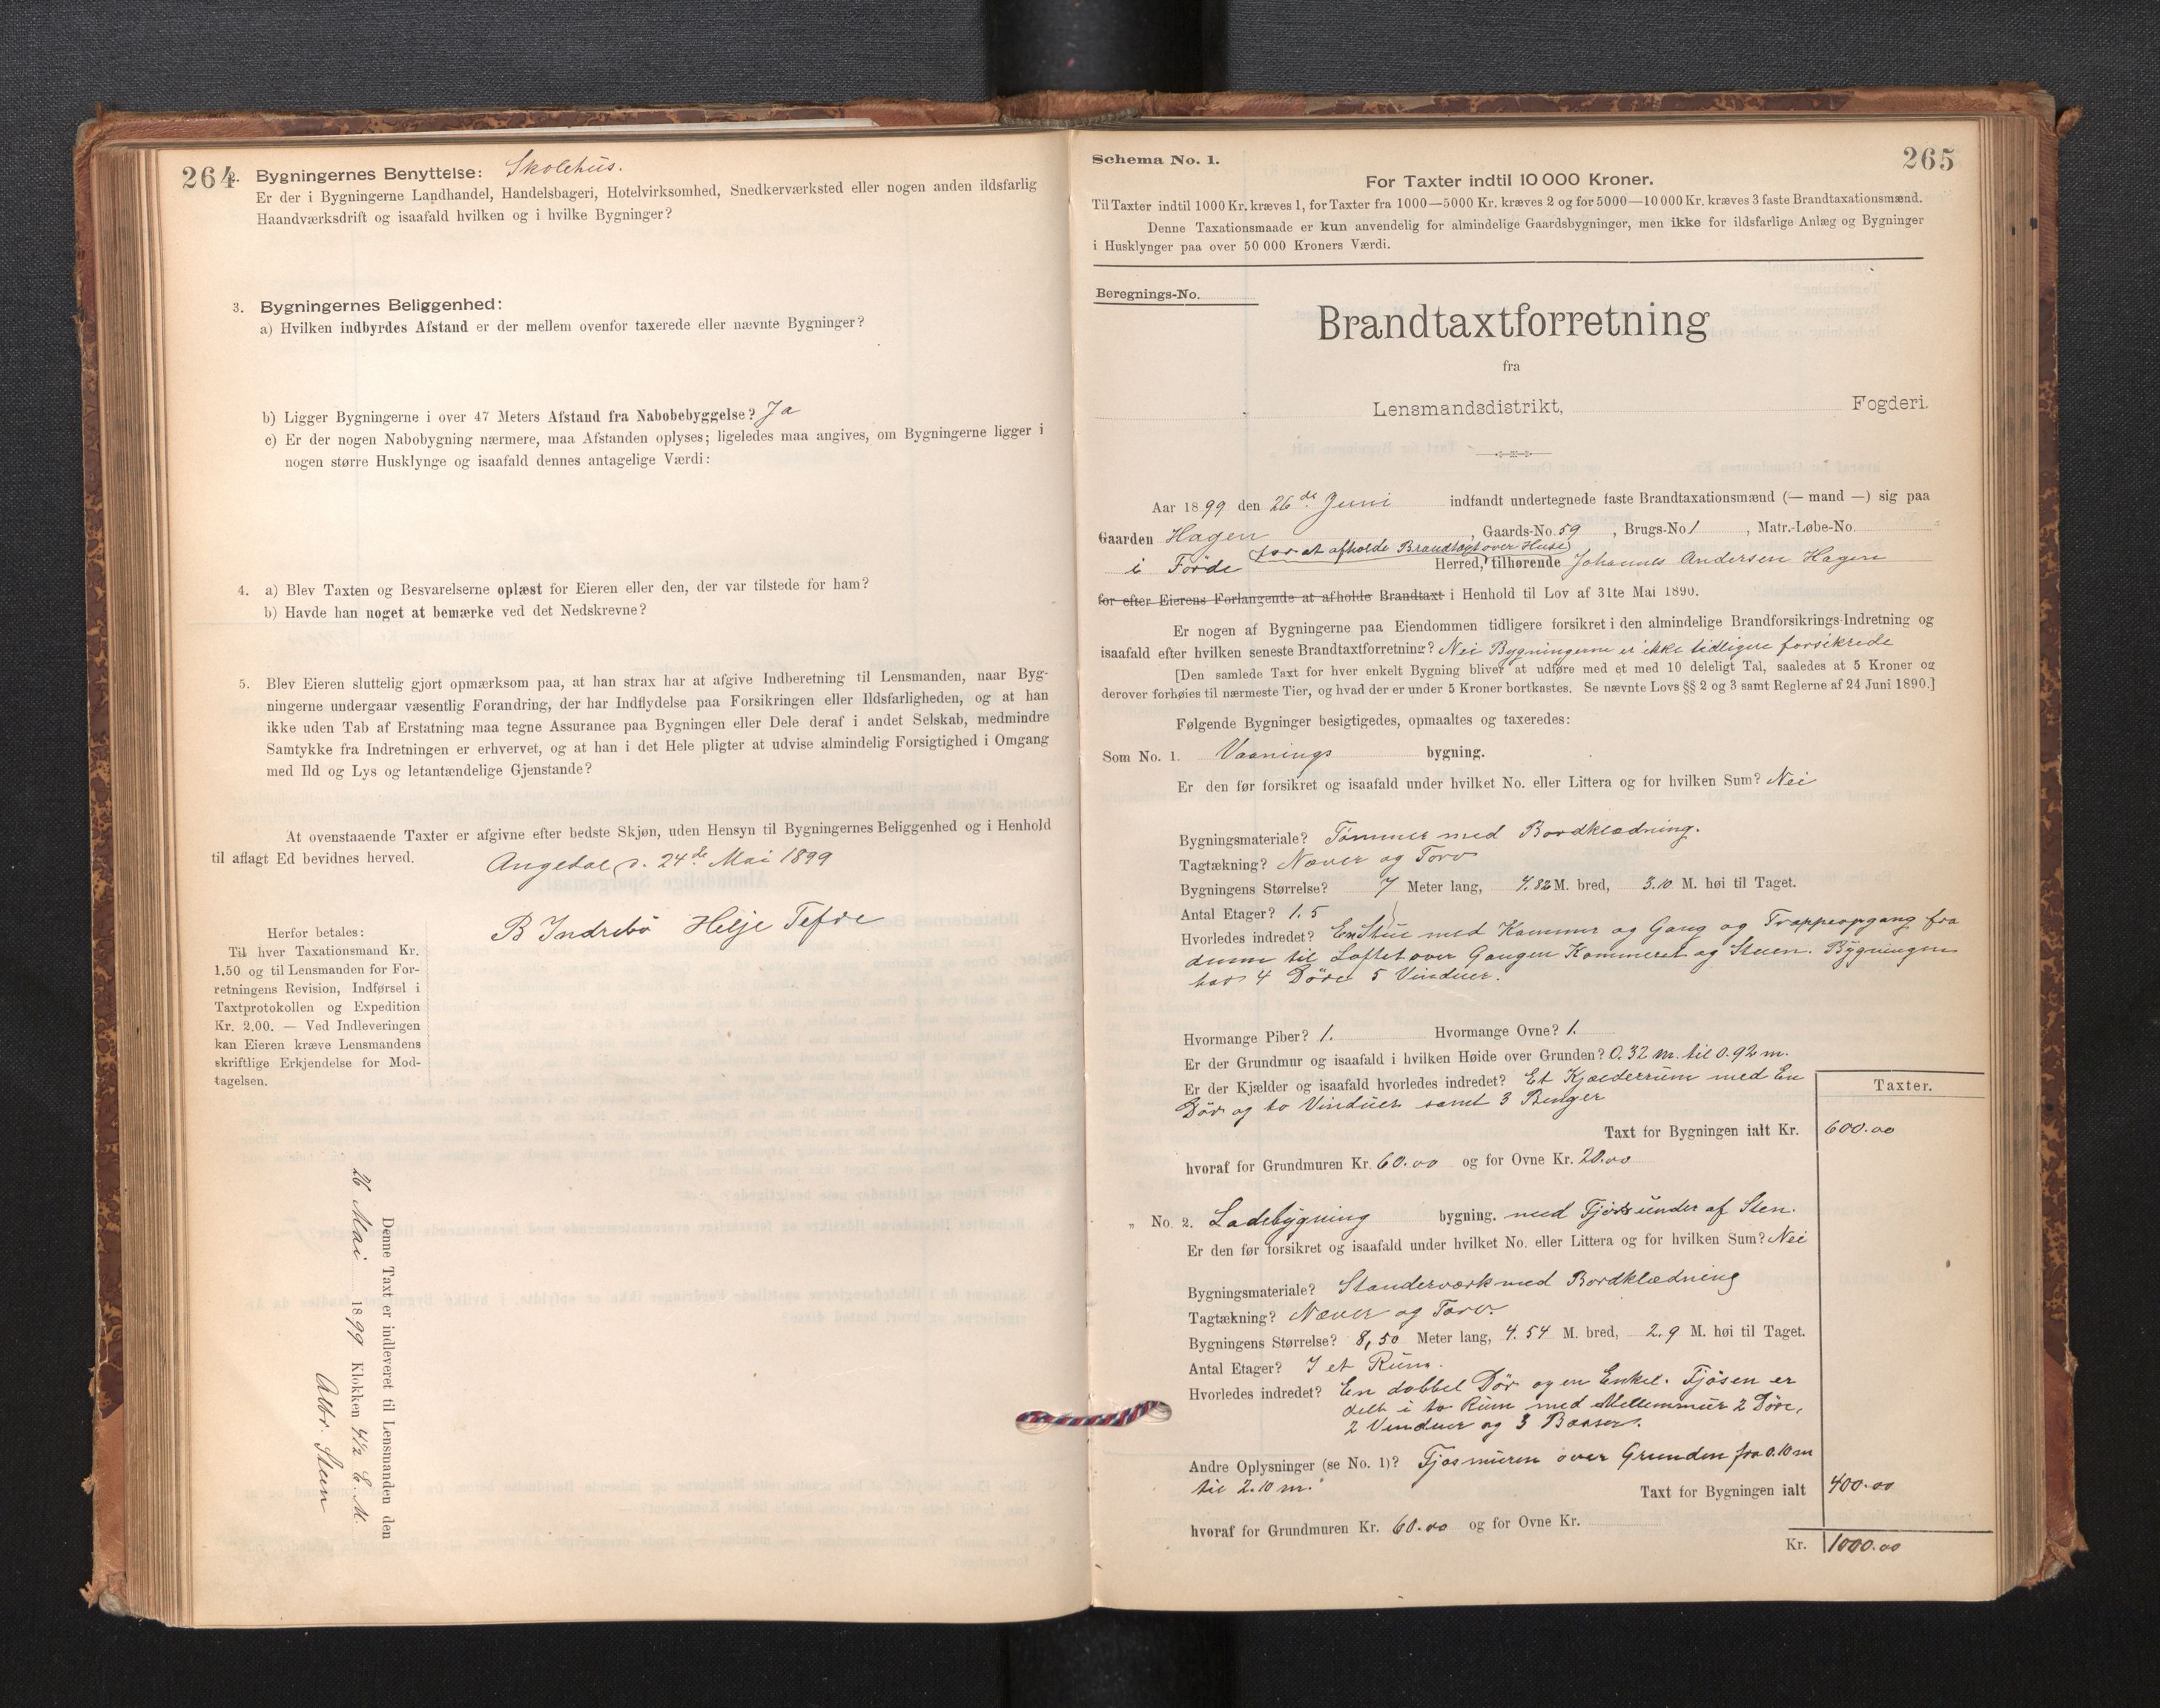 264
2. Bygningernes Benyttelse: Skolehus.
Er der i Bygningerne Landhandel, Handelsbageri, Hotelvirksomhed, Snedkerværksted eller nogen anden ildsfarlig
Haandværksdrift og isaafald hvilken og i hvilke Bygninger?
3. Bygningernes Beliggenhed:
a) Hvilken indbyrdes Afstand er der mellem ovenfor taxerede eller nævnte Bygninger?
b) Ligger Bygningerne i over 47 Meters Afstand fra Nabobebyggelse? Ja
c) Er der nogen Nabobygning nærmere, maa Afstanden oplyses; ligeledes maa angives, om Bygningerne ligger i
nogen større Husklynge og isaafald dennes antagelige Værdi:
4. a) Blev Taxten og Besvarelserne oplæst for Eieren eller den, der var tilstede for ham?
b) Havde han noget at bemærke ved det Nedskrevne?
5. Blev Eieren sluttelig gjort opmærksom paa, at han strax har at afgive Indberetning til Lensmanden, naar Byg-
ningerne undergaar væsentlig Forandring, der har Indflydelse paa Forsikringen eller Ildsfarligheden, og at han
ikke uden Tab af Erstatning maa tegne Assurance paa Bygningen eller Dele deraf i andet Selskab, medmindre
Samtykke fra Indretningen er erhvervet, og at han i det Hele pligter at udvise almindelig Forsigtighed i Omgang
med Ild og Lys og letantændelige Gjenstande?
At ovenstaaende Taxter er afgivne efter bedste Skjøn, uden Hensyn til Bygningernes Beliggenhed og i Henhold
til aflagt Ed bevidnes herved.
Angedal d. 24de Mai 1899
B Indrebö Helje Tefre
Herfor betales:
Til hver Taxationsmand Kr.
1.50 og til Lensmanden for For-
retningens Revision, Indførsel i
Taxtprotokollen og Expedition
Kr. 2.00. — Ved Indleveringen
kan Eieren kræve Lensmandens
skriftlige Erkjendelse for Mod-
tagelsen.
Denne Taxt er indleveret til Lensmanden den
26 Mai 1899 Klokken 4½ E. M.
Albr. Steen
265
Schema No. 1.
For Taxter indtil 10 000 Kroner.
Til Taxter indtil 1000 Kr. kræves 1, for Taxter fra 1000—5000 Kr. kræves 2 og for 5000—10 000 Kr. kræves 3 faste Brandtaxationsmænd.
Denne Taxationsmaade er kun anvendelig for almindelige Gaardsbygninger, men ikke for ildsfarlige Anlæg og Bygninger
i Husklynger paa over 50 000 Kroners Værdi.
Beregnings-No.
Brandtaxtforretning
fra
Lensmandsdistrikt, Fogderi.
Aar 1899 den 26de Juni indfandt undertegnede faste Brandtaxationsmænd (— mand —) sig paa
Gaarden Hagen, Gaards-No. 59, Brugs-No 1, Matr.-Løbe-No.
for at afholde Brandtaxt over Huse
i Förde Herred, tilhørende Johannes Andersen Hagen
for efter Eierens Forlangende at afholde Brandtaxt i Henhold til Lov af 31te Mai 1890.
Er nogen af Bygningerne paa Eiendommen tidligere forsikret i den almindelige Brandforsikrings-Indretning og
isaafald efter hvilken seneste Brandtaxtforretning? Nei Bygningerne er ikke tidligere forsikrede
[Den samlede Taxt for hver enkelt Bygning bliver at udføre med et med 10 deleligt Tal, saaledes at 5 Kroner og
derover forhøies til nærmeste Tier, og hvad der er under 5 Kroner bortkastes. Se nævnte Lovs §§ 2 og 3 samt Reglerne af 24 Juni 1890.]
Følgende Bygninger besigtigedes, opmaaltes og taxeredes:
Som No. 1. Vaanings bygning.
Er den før forsikret og isaafald under hvilket No. eller Littera og for hvilken Sum? Nei
Bygningsmateriale? Tømmer med Bordklædning.
Tagtækning? Næver og Torv
Bygningens Størrelse? 7 Meter lang, 4.82 M. bred, 3.10 M. høi til Taget.
Antal Etager? 1.5
Hvorledes indredet? En Stue med Kammer og Gang og Trappeopgang fra
denne til Loftet over Gangen Kammeret og Stuen. Bygningen
har 4 Döre 5 Vinduer.
Hvormange Piber? 1. Hvormange Ovne? 1.
Er der Grundmur og isaafald i hvilken Høide over Grunden? 0.32 m. til 0.92 m.
Er der Kjælder og isaafald hvorledes indredet? Et Kjælderrum med En
Dör og to Vinduer samt 3 Binger
Taxter.
Taxt for Bygningen ialt Kr. 600.00
hvoraf for Grundmuren Kr. 60.00 og for Ovne Kr. 20.00
„ No. 2. Ladebygning bygning. med Fjös under af Sten.
Er den før forsikret og isaafald under hvilket No. eller Littera og for hvilken Sum? Nei
Bygningsmateriale? Standerværk med Bordklædning
Tagtækning? Næver og Torv.
Bygningens Størrelse? 8,50 Meter lang, 4.54 M. bred, 2.9 M. høi til Taget.
Antal Etager? I et Rum.
Hvorledes indredet? En dobbel Dör og en Enkel. Fjösen er
delt i to Rum med Mellemmur 2 Döre,
2 Vinduer og 3 Baaser.
Andre Oplysninger (se No. 1)? Fjösmuren over Grunden fra 0.10 m
til 2.10 m.
Taxt for Bygningen ialt 400.00
hvoraf for Grundmuren Kr. 60.00 og for Ovne Kr.
Kr. 1000.00